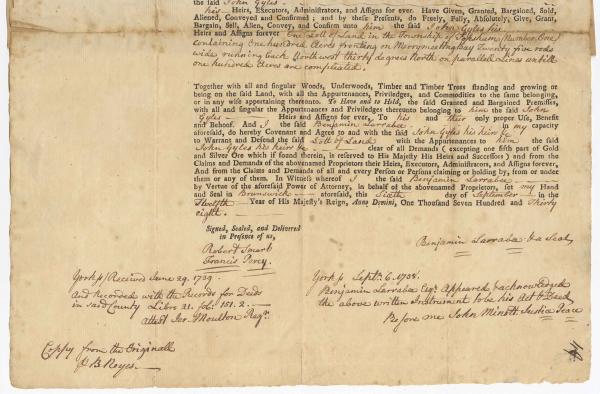 the said John Gyles
his Heirs, Executors, Administrators, and Assigns for ever. Have Given, Granted, Bargained, Sold,
Aliened, Conveyed and Confirmed; and by these Presents, do Freely, Fully, Absolutely, Give, Grant,
Bargain, Sell, Alien, Convey, and Confirm unto him the said John Gyles his
Heirs and Assigns forever One Lott of Land in the Township of Topsham, Number One
containing One hundred Acres fronting on Merrymeeting bay Twenty five rods
wide running back Northwest thirty degrees North on parallel Lines untill
one hundred Acres are compleated.
Together with all and singular Woods, Underwoods, Timber and Timber Trees standing and growing or
being on the said Land, with all the Appurtenances, Priviledges, and Commodities to the same belonging,
or in any wise appertaining thereunto. To Have and to Hold, the said Granted and Bargained Premisses,
with all and singular the Appurtenances and Priviledges thereunto belonging to him the said John
Gyles Heirs and Assigns for ever, To his and their only proper Use, Benefit
and Behoof. And I the said Benjamin Larrabe in my capacity
aforesaid, do hereby Covenant and Agree to and with the said John Gyles his heirs &c
to Warrant and Defend the said Lott of Land with the Appurtenances to him the said
John Gyles his heirs &c clear of all Demands (excepting one fifth part of Gold
and Silver Ore which if found therein, is reserved to His Majesty His Heirs and Successors) and from the
Claims and Demands of the abovenamed Proprietors their Heirs, Executors, Administrators, and Assigns forever,
And from the Claims and Demands of all and every Person or Persons claiming or holding by, from or under
them or any of them. In Witness whereof I the said Benjamin Larrabe
by Vertue of the aforesaid Power of Attorney, in behalf of the abovenamed Proprietors, set my Hand
and Seal in Brunswick aforesaid, this Sixth day of September in the
Twelfth Year of His Majesty's Reign, Anno Domini, One Thousand Seven Hundred and Thirty
eight.
Signed, Sealed, and Delivered
in Presence of us,
Robert Smart
Francis Percy
Benjamin Larrabe & a Seal
York ss Received June 29. 1739
And recorded with the Records for Deeds
in said County Libro 21. fol. 151. 2
attest Jer. Moulton Regr.
York ss Septr. 6. 1738.
Benjamin Larraba Esqr. Appeared & acknowledged
the above written Instrument to be his Act & Deed
Before me John Minott Justis Peace
Coppy from the Originall
B Noyes